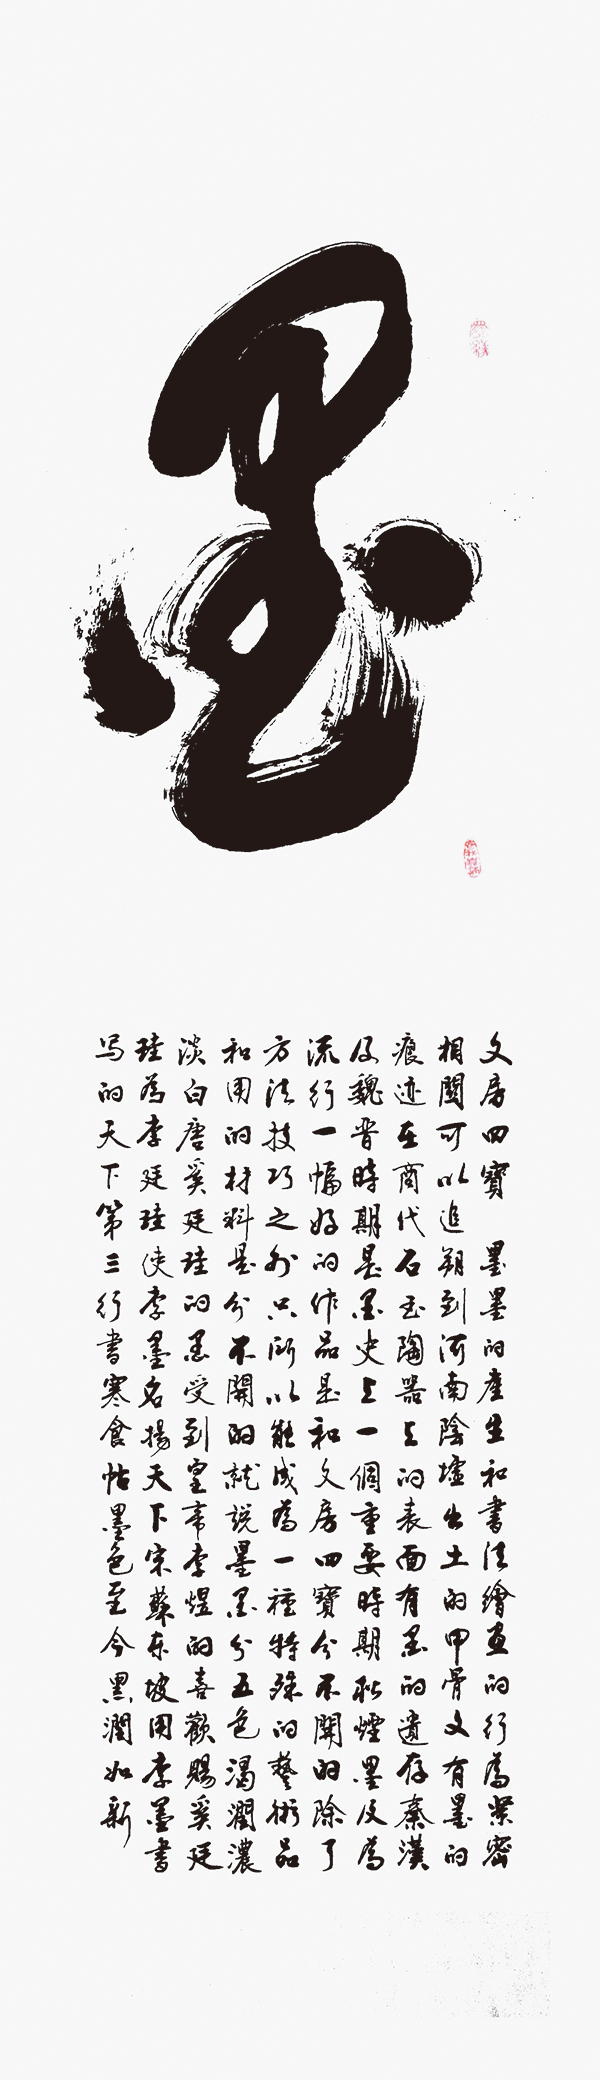 墨
文房四寶 墨墨的產生和書法繪画的行為緊密
相関可以追朔到河南陰墟出土的甲骨文有墨的
痕迹在商代石玉陶器上的表面有墨的遺存秦漢
及魏晋時期是墨史上一個重要時期松煙墨及為
流行一幅好的作品是和文房四寶分不開的除了
方法技巧之外只所以能成為一種特殊的藝術品
和用的材料是分不開的就說墨墨分五色渴潤濃
淡白唐奚廷珪的墨受到皇帝李煜的喜歡賜奚廷
珪為李廷珪使李墨名揚天下宋蘇东坡用李墨書
写的天下第三行書寒食帖墨色至今黑潤如新